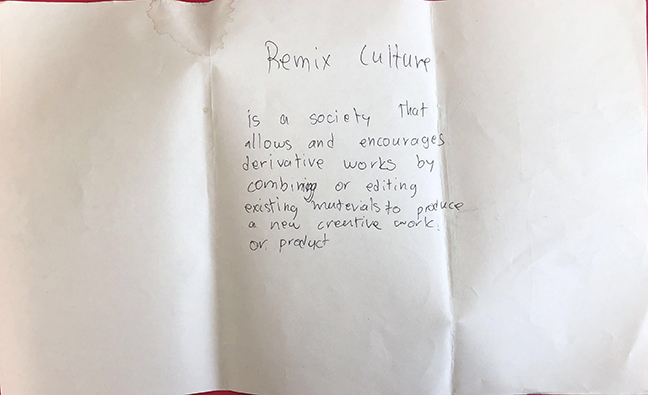 Remix Culture
is a society that
allows and encourages
derivative works by
combining or editing
existing materials to produce
a new creative work
or product